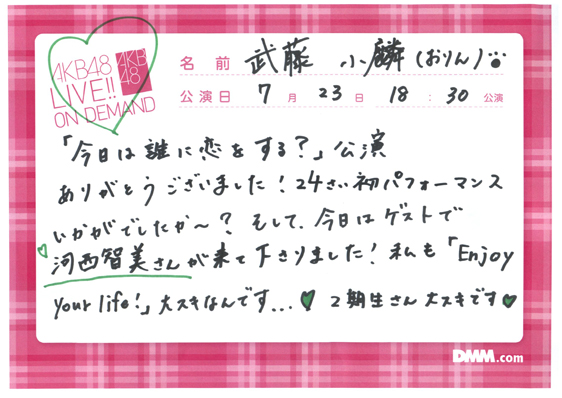 AKB48
LIVE!!
ON DEMAND
AKB
48
名前 武藤 小麟(おりん)
公演日 7月23日 18:30公演
「今日は誰に恋をする?」公演
ありがとうございました!24さい初パフォーマンス
いかがでしたか〜?そして、今日はゲストで
河西智美さんが来て下さりました!私も「Enjoy
your life!」大スキなんです...♥ 2期生さん大スキです♥
DMM.com